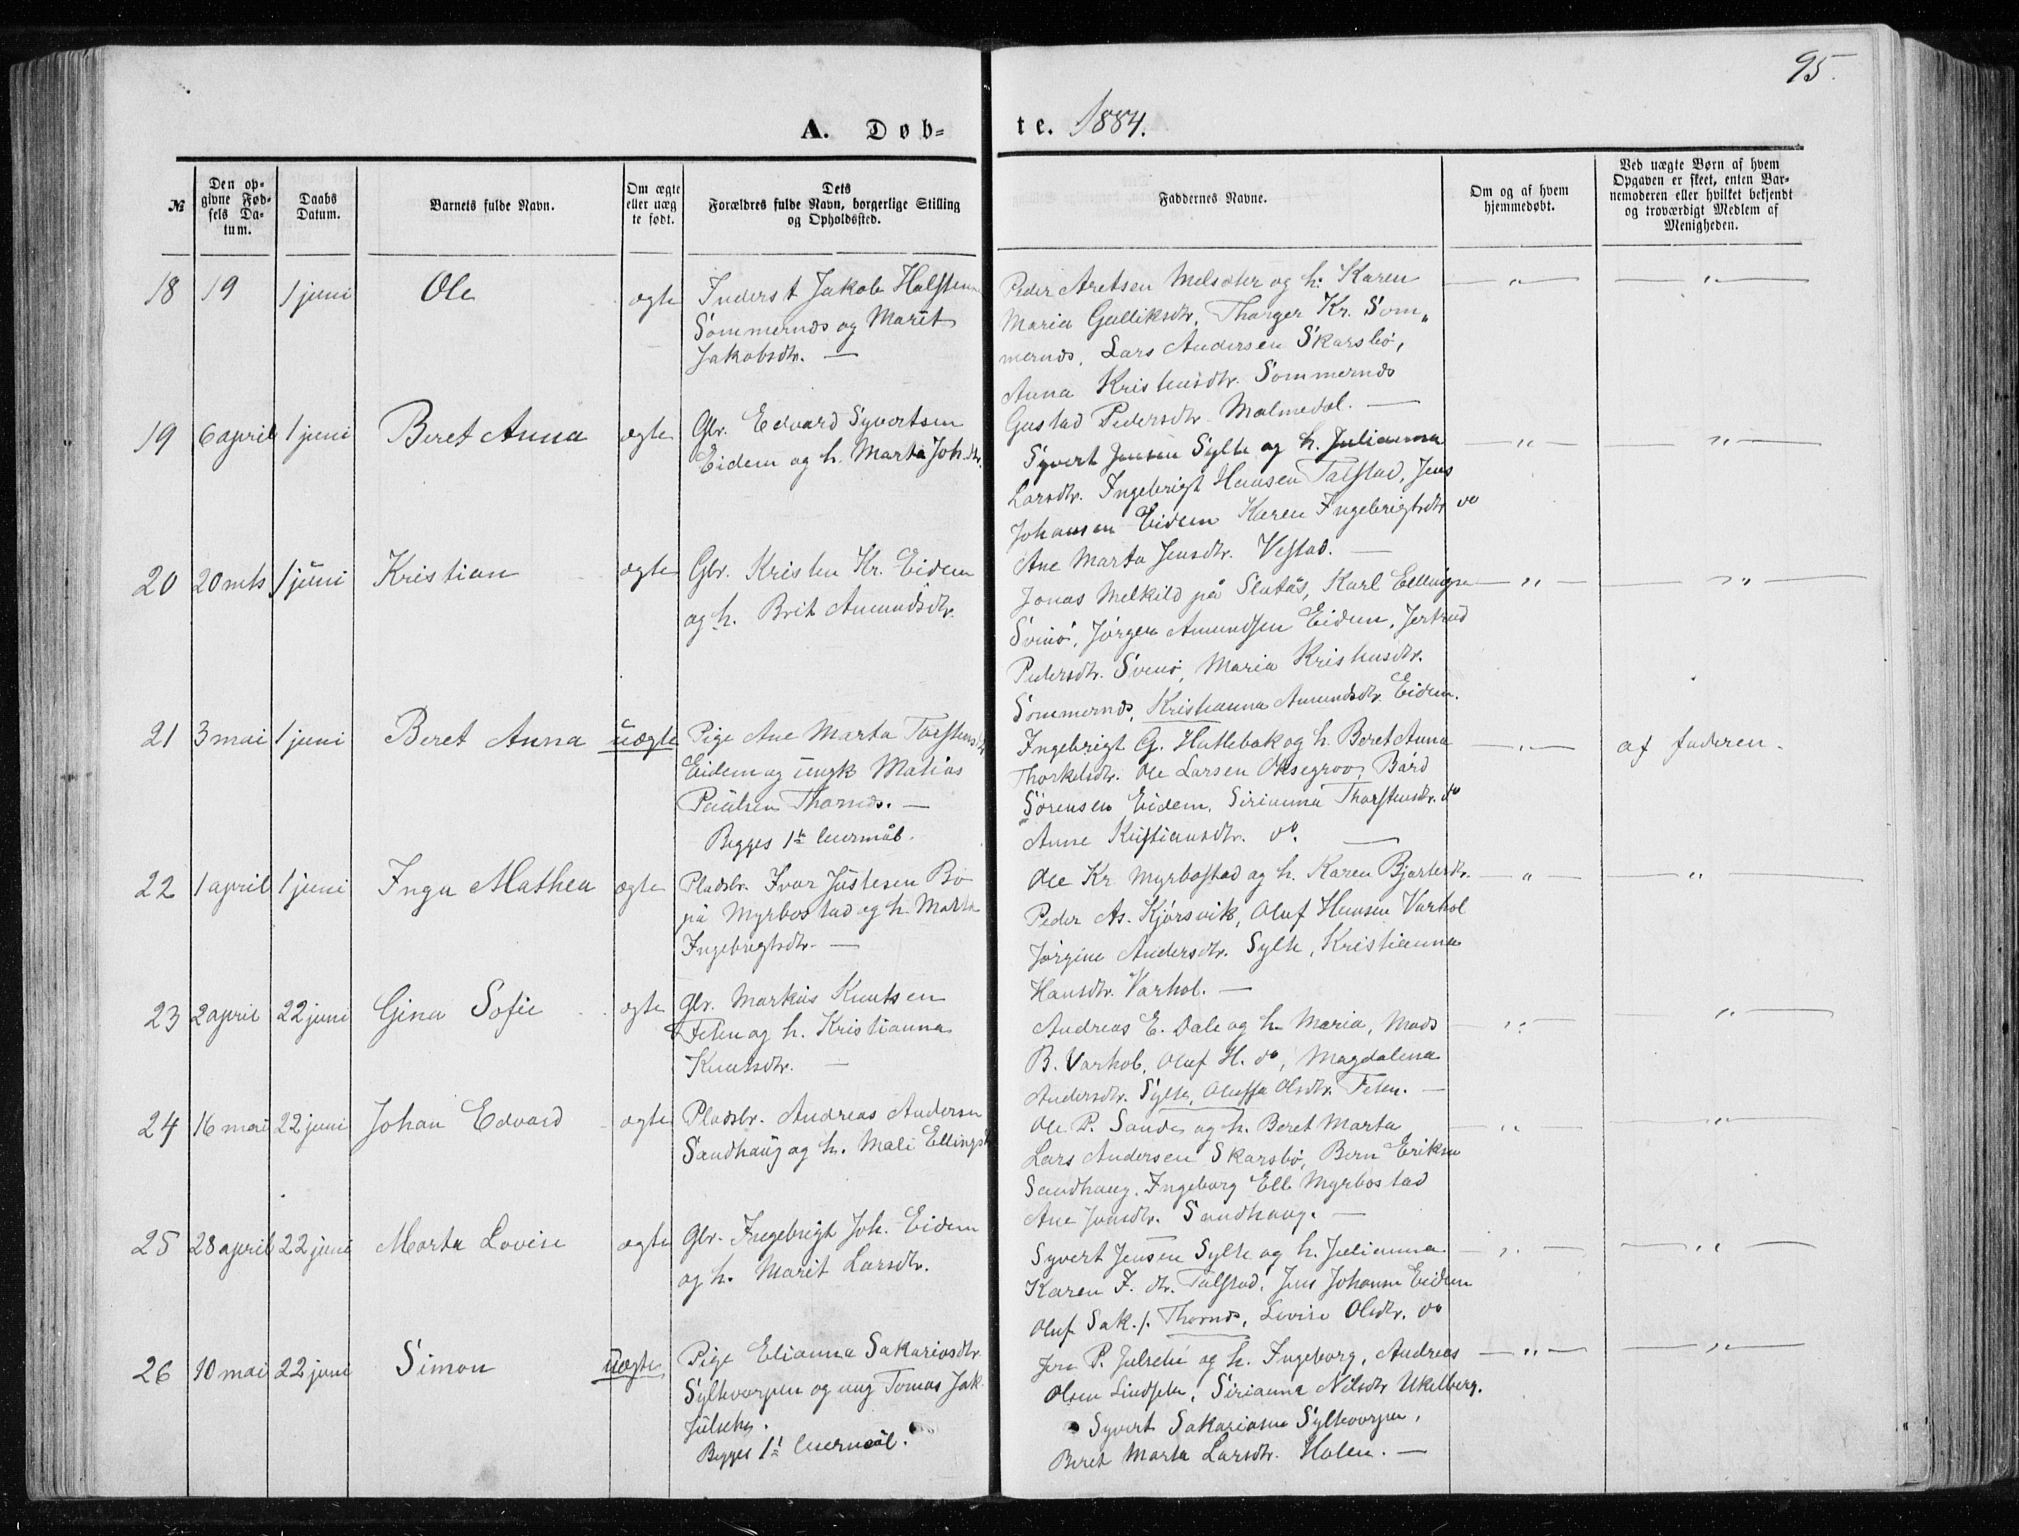 95.
A. Døb- te. 1884.
№
Den opgivne Fødsels Datum.
Daabs Datum.
Barnets fulde Navn.
Om ægte eller uægte født.
Dets Forældres fulde Navn, borgerlige Stilling og Opholdssted.
Faddernes Navne.
Om og af hvem hjemmedøbt.
Ved uægte Børn af hvem Opgaven er skeet, enten Barnemoderen eller hvilket bekjendt og troværdigt Medlem af Menigheden.
18 19 1 juni Ole ægte Inderst Jakob Halsten
Sommernæs og Marit
Jakobsdtr. —
Peder Aretsen Melsæter og h. Karen
Maria Gulliksdtr, Thorger Kr. Som„
mernæs, Lars Andersen Skarsbö,
Anna Kristensdtr. Sommernæs
Gustad Pedersdtr. Malmedal. —
19 6 april 1 juni Beret Anna ægte Gbr. Edvard Syvertsen
Eidem og h. Marta Joh.dtr.
Syvert Jensen Sylte og h. Julianna
Larsdtr. Ingebrigt Hansen Talstad, Jens
Johansen Eidem Karen Ingebrigtsdtr do
Ane Marta Jensdtr. Vestad. —
20 20 mts 1 juni Kristian ægte Gbr. Kristen Kr. Eidem
og h. Brit Amundsdtr.
Jonas Melkild på Slatås, Karl Ellingsen
Svinö, Jörgen Amundsen Eidem, Jertrud
Pedersdtr. Svinö, Maria Kristensdtr.
Sommernæs, Kristianna Amundsdtr. Eidem.
21 3 mai 1 juni Beret Anna uægte Pige Ane Marta Torstensdtr
Eidem og ungk Matias
Paulsen Thornæs. —
Begges 1te leiermål.
Ingebrigt G. Hattebak og h. Beret Anna
Thorkelsdtr. Ole Larsen Oksegrov, Bård
Sörensen Eidem, Sirianna Thorstensdtr. do
Anne Kristiansdtr. do. —
af faderen.
22 1 april 1 juni Inga Mathea ægte Pladsbr. Ivar Justesen Bö
på Myrbostad og h. Marta
Ingebrigtsdtr. —
Ole Kr Myrbostad og h. Karen Bjartesdtr.
Peder As. Kjörsvik, Oluf Hansen Varhol
Jörgine Andersdtr. Sylte, Kristianna
Hansdtr. Varhol. —
23 2 april 22 juni Gina Sofie ægte Gbr. Markus Knutsen
Feten og h. Kristianna
Knutsdtr. —
Andreas E. Dale og h. Maria, Mads
B. Varhol, Oluf H. do, Magdalena
Andersdtr. Sylte, Oluffa Olsdtr. Feten. —
24 16 mai 22 juni Johan Edvard ægte Pladsbr. Andreas Andersen
Sandhaug og h. Mali Ellingsdtr
Ole P. Sandes og h. Beret Marta
Lars Andersen Skarsbö, Bern Eriksen
Sandhaug, Ingeborg Ell. Myrbostad
Ane Jonsdtr. Sandhaug. —
25 28 april 22 juni Marta Lovise ægte Gbr. Ingebrigt Joh. Eidem
og h. Marit Larsdtr.
Syvert Jensen Sylte og h. Julianna
Karen I. dtr. Talstad, Jens Johansen Eidem
Oluf Sak. s. Thornæs, Lovise Olsdtr. do
26 10 mai 22 juni Simon uægte Pige Elianna Sakariasdtr
Syltevorpen og ung Tomas Jak.
Julseby.
Begges 1te leiermål.
Jens P. Julsebö og h. Ingeborg, Andreas
Olsen Lindseter, Sirianna Nilsdtr Ukelberg.
Syvert Sakariasen Syltevorpen,
Beret Marta Larsdtr. Holen. —